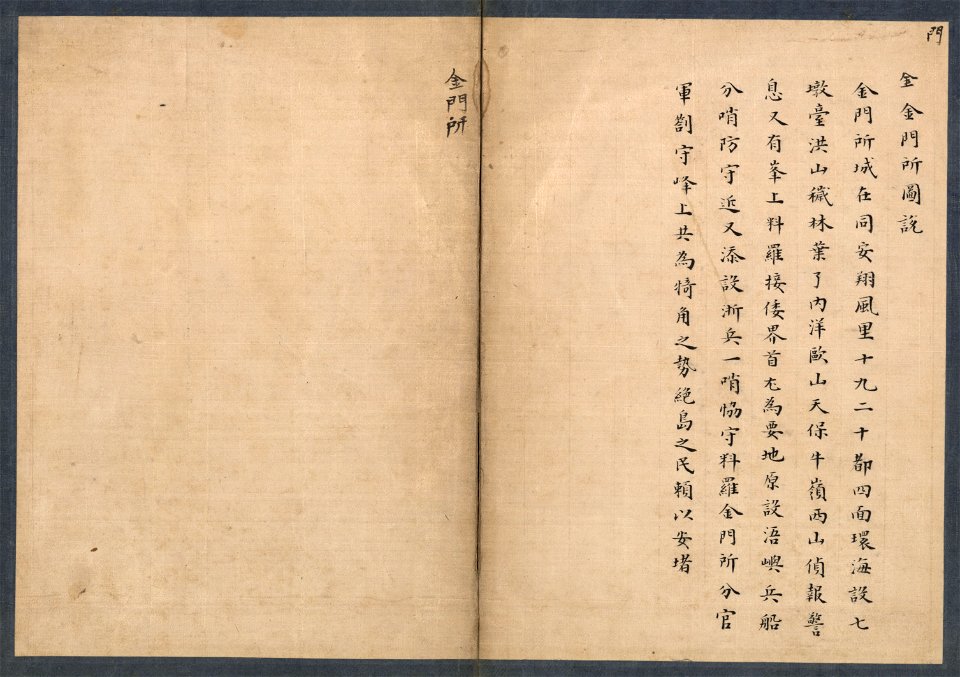 門
金金門所圖說
金門所城在同安翔風里十九二十都四面環海設七
墩臺洪山穢林葉了內洋歐山天保牛嶺西山偵報警
息又有峯上料羅接倭界首尤為要地原設浯嶼兵船
分哨防守近又添設浙兵一哨恊守料羅金門所分官
軍劄守峰上共為犄角之勢絕島之民賴以安堵
金門所